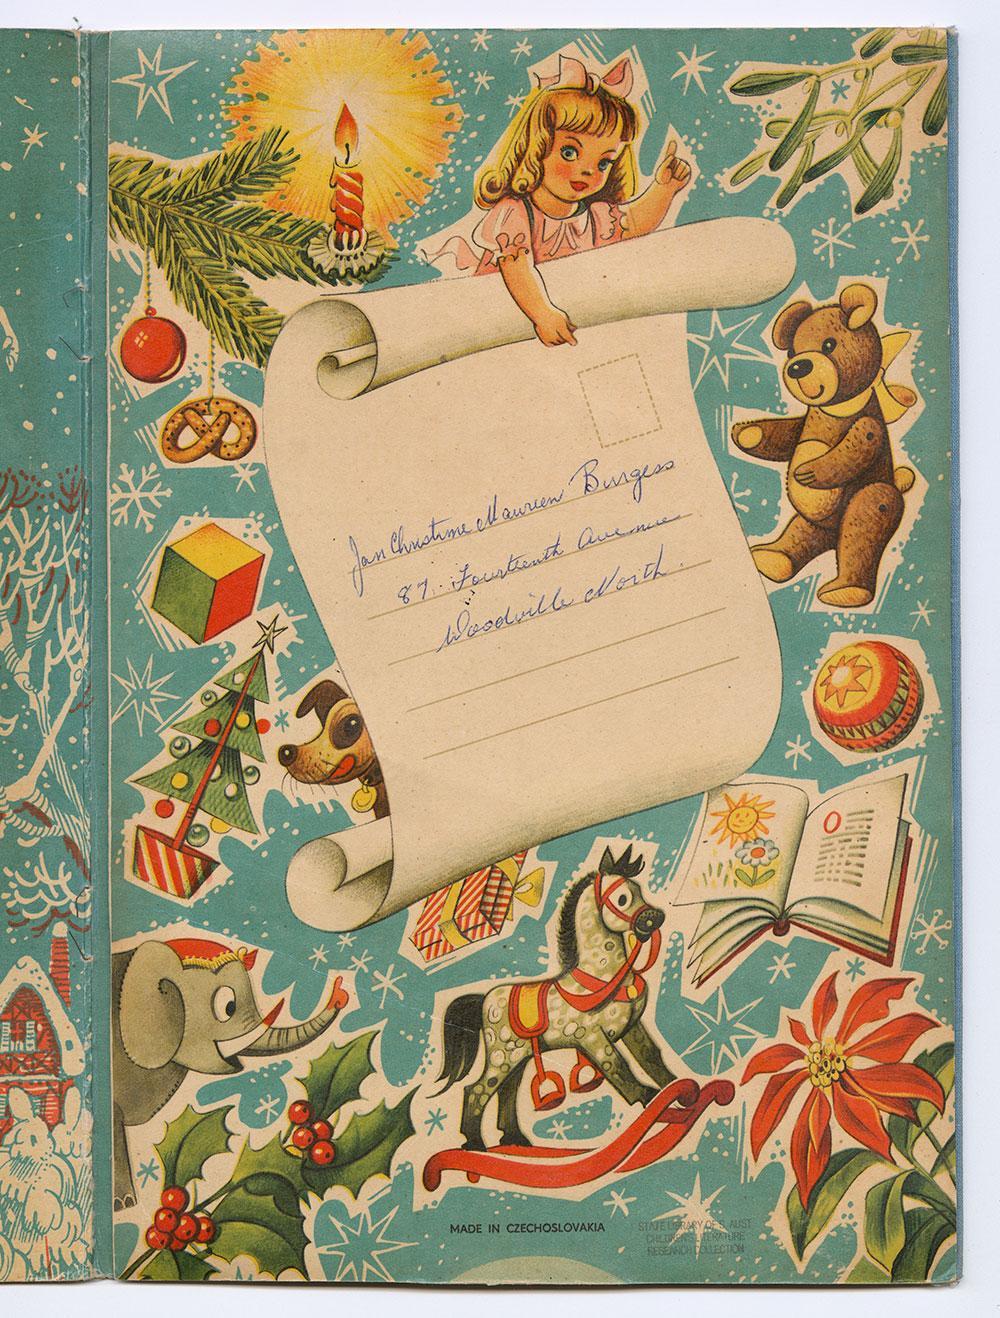 Jan Christine Maureen Burgess
87. Fourteenth Avenue
Woodville North.
O
MADE IN CZECHOSLOVAKIA
STATE LIBRARY OF S. AUST
CHILDREN'S LITERATURE
RESEARCH COLLECTION